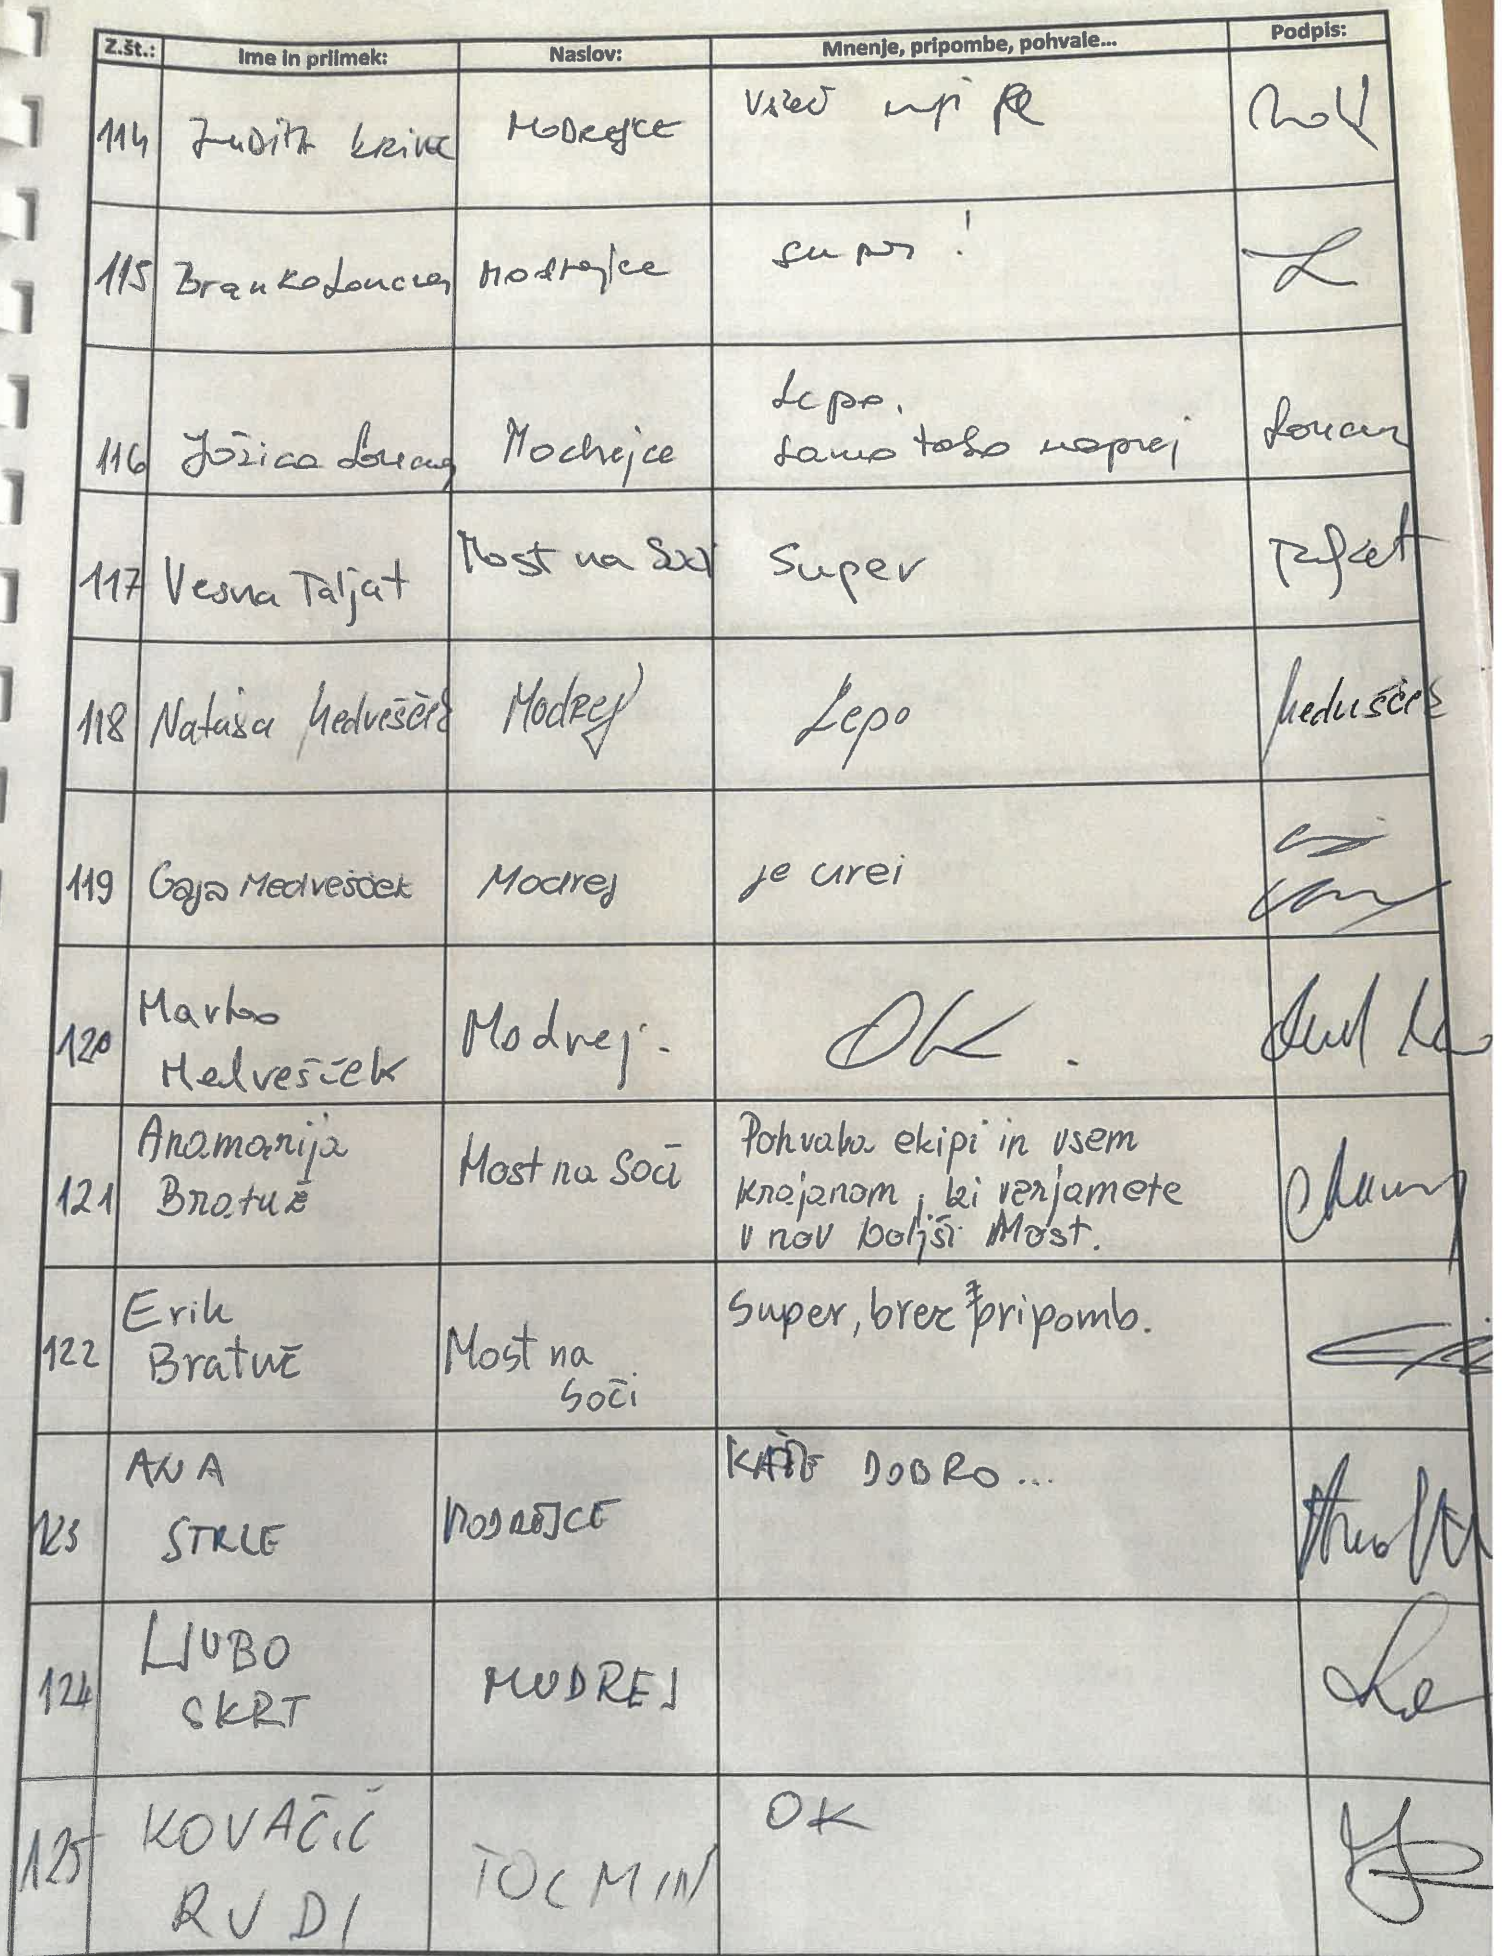 Z.št.: Ime in priimek: Naslov: Mnenje, pripombe, pohvale... Podpis:
114 Judita Krivc MODREJCE všeč mi je
115 Branko Loncar Modrejce super !
116 Jožica Loncar Modrejce Lepo.
Samo tako naprej Loncar
117 Vesna Taljat Most na Soči Super Taljat
118 Nataša Medvešček Modrej Lepo Medvešček
119 Gaja Medvešček Modrej je urei
120 Marko
Medvešček Modrej. OK.
121 Anamarija
Bratuž Most na Soči Pohvala ekipi in vsem
krajanom, ki verjamete
v nov boljši Most.
122 Erik
Bratuž Most na
Soči Super, brez pripomb.
123 ANA
STRLE MODREJCE KAŽE DOBRO...
124 LJUBO
SKRT MODREJ
125 KOVAČIČ
RUDI TOLMIN OK